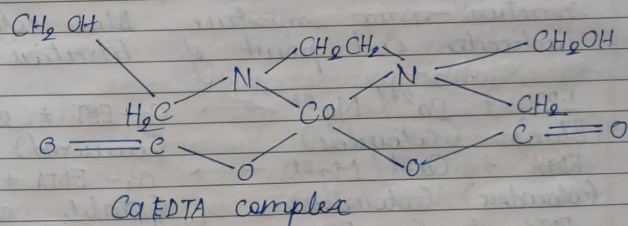 CH2 OH
CH2CH2
CH2OH
N
N
H2C
CO
CH2
O
C
C
O
O
O
Ca EDTA complex